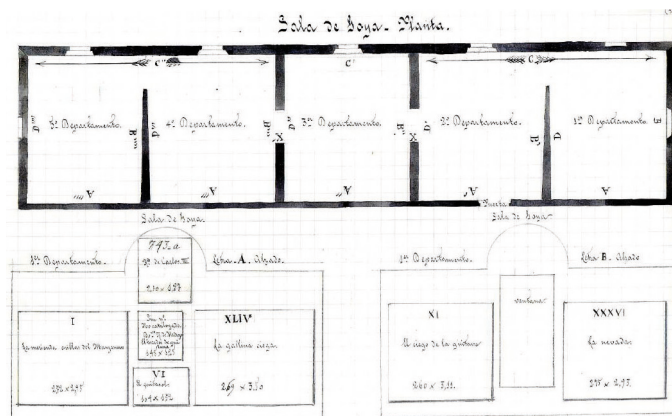 Sala de Goya - Planta.
C" C' C
5º Departamento. 4º Departamento. 3er Departamento. 2º Departamento. 1er Departamento.
D"" B"" D"' B"' X D" B" X D' B' D B
A A A A A
Puerta
Sala de Goya. Sala de Goya
1er Departamento. Letra A. Alzado.
743.a
de Carlos III
2,10 x
I
La merienda orillas del Manzanares
2,72 x 2,95
VI
El quitasol
1,04 x 1,52
XLIVª
La gallina ciega
2,69 x 3,50
1er Departamento. Letra B. Alzado.
XI
El ciego de la guitarra
2,60 x 3,11.
ventana
XXXVI
La nevada
2,75 x 2,93.